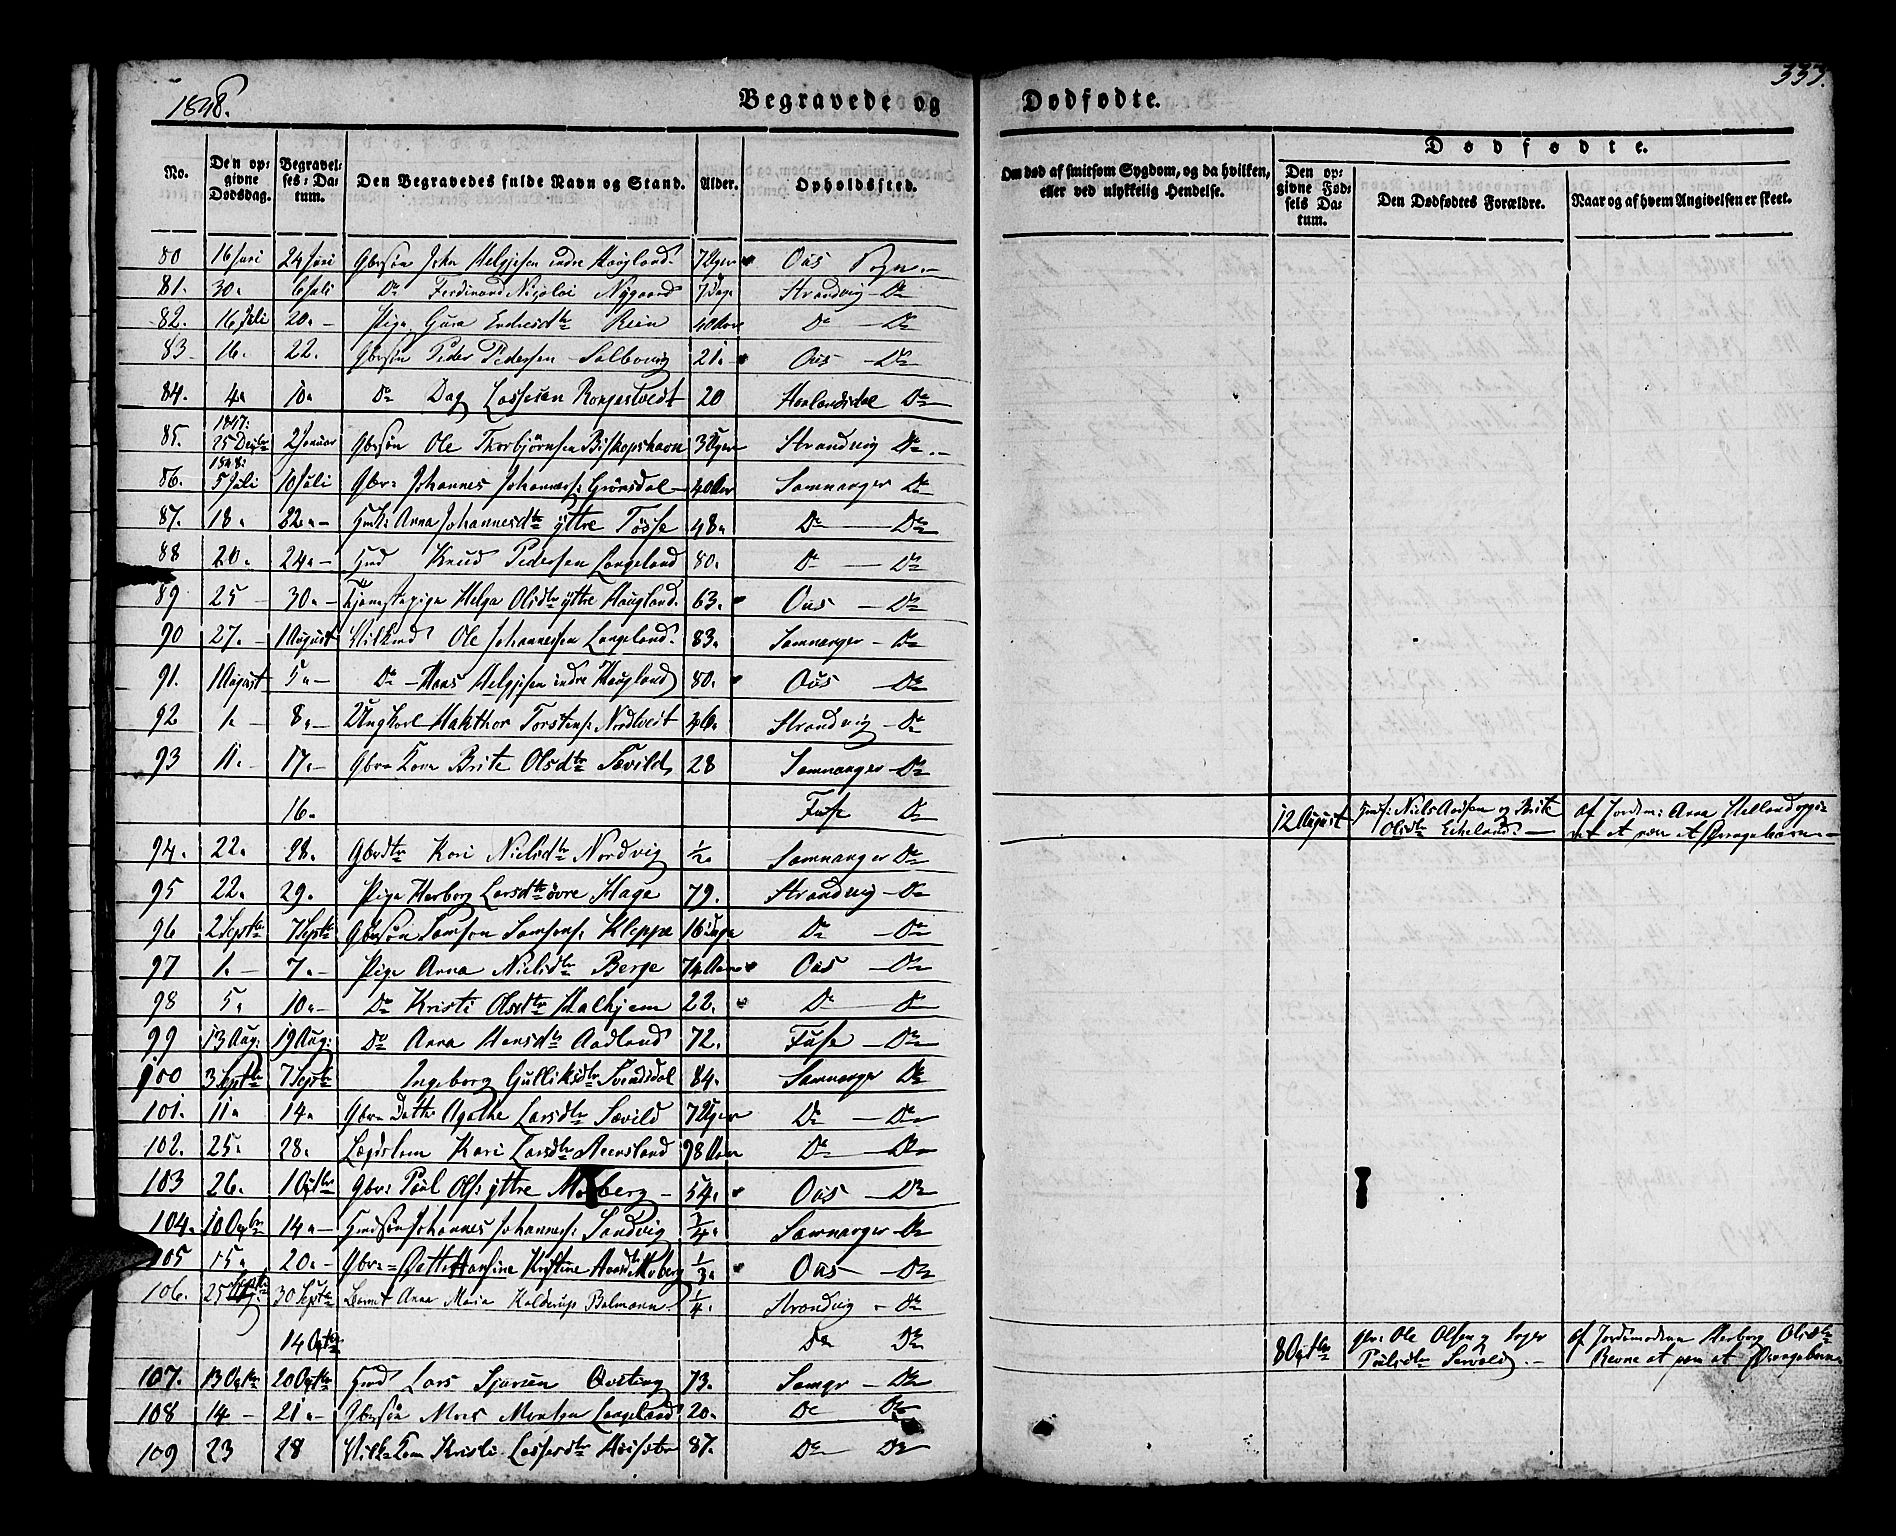 1848.
Begravede og Dødfødte.
333.
No.
Den opgivne Dødsdag.
Begravelses-Datum.
Den Begravedes fulde Navn og Stand.
Alder.
Opholdssted.
Om død af smitsom Sygdom, og da hvilken, eller ved ulykkelig Hendelse.
Dødfødte.
Den opgivne Fødsels Datum.
Den Dødfødtes Forældre.
Naar og af hvem Angivelsen er skeet.
80 16 Juni 24 Juni Gbrsøn John Helgesen indre Haugland 7 Uger Ous Sogn
81. 30. 6 Juli Do Ferdinand Nicolai Nygaard 7 Dage Strandvig Do
82. 16 Juli 20. Pige Guro Endresdtr 40 Aar Do Do
83 16. 22. Gbrsøn Peder Pedersen Solbvrig 21. Ous Do
84. 4. 10. Do Dag Lassesen Rongestvedt 20 Haalandsdal Do
1847:
85. 25 Decbr 2 Januar Gbrsøn Ole Thorbjørnsen Biskopshavn 3 Uger Strandvig Do
1848:
86. 5 Juli 10 Juli Gbr. Johannes Johanness: Grønsdal 40 Aar Samnanger Do
87. 18. 22. Hmk: Anna Johannesdtr ytre Tøsse 48. Do Do
88 20. 24. Hmd Knud Pedersen Langeland 80. Do Do
89 25 30. Tjenestepige Helga Olsdtr ytre Haugland 63. Ous Do
90 27. 1 August Vilkmd Ole Johannesen Langeland 83. Samnanger Do
91. 1 August 5. Do Hans Helgesen indre Haugland 80. Ous Do
92 1. 8. Ungkarl Hakthor Torstens: Nordtveit 26. Strandvig Do
93 11. 17. Gbr. Kone Brite Olsdtr Sævild 28 Samnanger Do
16. Fuse Do 12 August Hmf: Niels Arnsen og Brite Olsdtr Eikeland af Jordm: Anna Helland opgivet at være et Drengebarn
94. 22. 28. Gbrdtr Kari Nielsdtr Nordvig 1/2. Samnanger Do
95 22. 29. Pige Herborg Larsdtr øvre Hage 79. Strandvig Do
96 2 Septbr 7 Septbr Gbrsøn Samson Samsons: Kleppe 16 Dage Do Do
97 1. 7. Pige Anna Nielsdtr Berge 74 Aar Ous Do
98 5. 10. Do Kristi Olsdtr Halhjem 22. Do Do
99 13 Aug: 19 Aug: Do Anna Hansdtr Aadland 72. Fuse Do
100 3 Septbr 7 Septbr Ingeborg Gulliksdtr Svendsdal 84. Samnanger Do
101. 11. 14. Gbr. Datter Agathe Larsdtr Sævild 7 Uger Do Do
102. 25. 28. Lægdslem Kari Larsdtr Aaensland 98 Aar Do Do
103 26. 1 Octbr Gbr: Paul Ols: ytre Moberg 54. Ous Do
104. 10 Octbr 14. Hmdsøn Johannes Johanness: Sandvig 1/4. Samnanger Do
105 15. 20. Gbr. Datter Hansine Kristine Hansdtr Moberg 1/3. Ous Do
106. 25 Septbr 30 Septbr Barnet Anna Maria Kolderup Bolmann 1/4. Strandvig Do
14 Octbr Do Do 8 Octbr Gbr: Ole Olsen og Inger Pålsdtr Sævold af Jordmoderen Herborg Olsdtr Revne at være et Drengebarn
107. 13 Octbr 20 Octbr Hmd Lars Sjursen Qvsting 73. Samgr Do
108 14 21. Gbrsøn Mons Monsen Langeland 20. Do Do
109 23 28 Vilk. Kone Kristi Lassesdtr Høisæter 87. Do Do